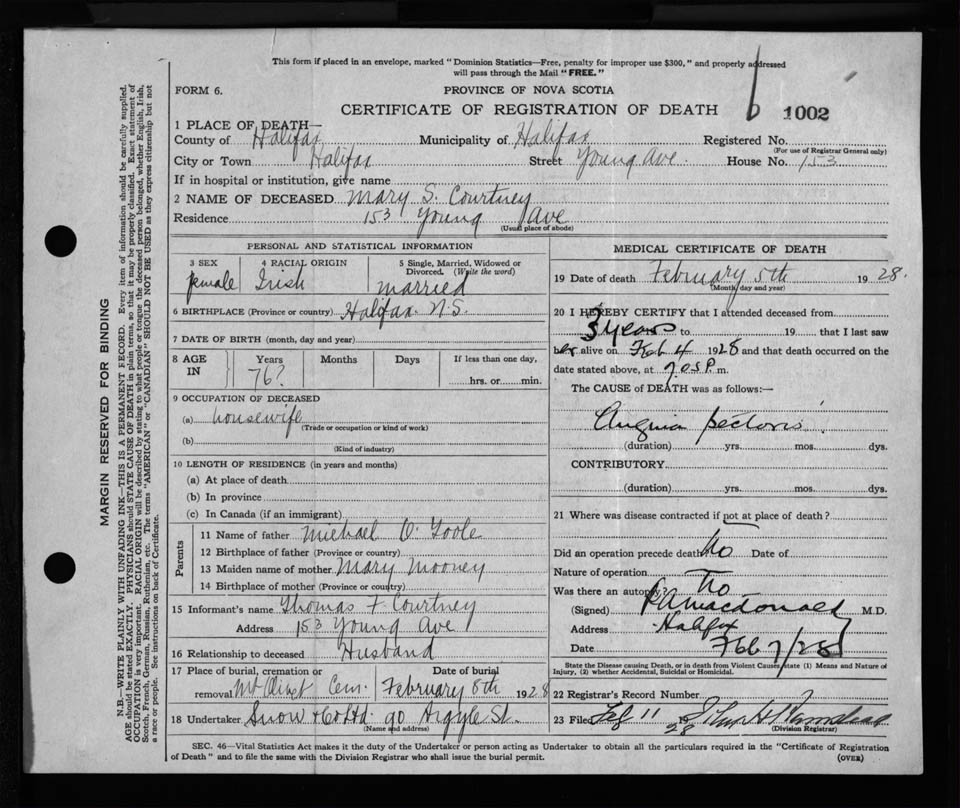 This form if placed in an envelope, marked "Dominion Statistics—Free, penalty for improper use $300," and properly addressed
will pass through the Mail "FREE."
FORM 6.
PROVINCE OF NOVA SCOTIA
CERTIFICATE OF REGISTRATION OF DEATH
1002
1 PLACE OF DEATH—
County of Halifax Municipality of Halifax Registered No.
(For use of Registrar General only)
City or Town Halifax Street Young Ave. House No. 153
If in hospital or institution, give name
2 NAME OF DECEASED Mary S. Courtney
Residence 153 Young Ave
(Usual place of abode)
PERSONAL AND STATISTICAL INFORMATION
3 SEX 4 RACIAL ORIGIN 5 Single, Married, Widowed or
Divorced. (Write the word)
female Irish married
6 BIRTHPLACE (Province or country) Halifax N.S.
7 DATE OF BIRTH (month, day and year)
8 AGE IN Years Months Days If less than one day,
76? hrs. or min.
9 OCCUPATION OF DECEASED
(a) housewife
(Trade or occupation or kind of work)
(b)
(Kind of industry)
10 LENGTH OF RESIDENCE (in years and months)
(a) At place of death
(b) In province
(c) In Canada (if an immigrant)
Parents
11 Name of father Michael O'Toole
12 Birthplace of father (Province or country)
13 Maiden name of mother Mary Mooney
14 Birthplace of mother (Province or country)
15 Informant's name Thomas F Courtney
Address 153 Young Ave
16 Relationship to deceased Husband
17 Place of burial, cremation or Date of burial
removal Mt Olivet Cem. February 8th 1928
18 Undertaker Snow & Co Ltd. 90 Argyle St.
(Name and address)
MEDICAL CERTIFICATE OF DEATH
19 Date of death February 5th 1928.
(Month, day and year)
20 I HEREBY CERTIFY that I attended deceased from
3 years to 19 that I last saw
her alive on Feb 4 1928 and that death occurred on the
date stated above, at 7.05 P. m.
The CAUSE of DEATH was as follows:—
Angina pectoris
(duration) yrs. mos. dys.
CONTRIBUTORY
(duration) yrs. mos. dys.
21 Where was disease contracted if not at place of death?
Did an operation precede death No Date of
Nature of operation
Was there an autopsy? No
(Signed) Macdonald M.D.
Address Halifax
Date Feb 7/28
State the Disease causing Death, or in death from Violent Causes, state (1) Means and Nature of
Injury, (2) whether Accidental, Suicidal or Homicidal.
22 Registrar's Record Number
23 Filed Feb 11 1928
(Division Registrar)
SEC. 46—Vital Statistics Act makes it the duty of the Undertaker or person acting as Undertaker to obtain all the particulars required in the "Certificate of Registration
of Death" and to file the same with the Division Registrar who shall issue the burial permit.
(OVER)
MARGIN RESERVED FOR BINDING
N.B.—WRITE PLAINLY WITH UNFADING INK—THIS IS A PERMANENT RECORD. Every item of information should be carefully supplied.
AGE should be stated EXACTLY. PHYSICIANS should STATE CAUSE OF DEATH in plain terms, so that it may be properly classified. Exact statement of
OCCUPATION is very important. RACIAL ORIGIN will be described by stating to what people or tongue the deceased person belonged, whether English, Irish,
Scotch, French, German, Russian, Ruthenian, etc. The terms "AMERICAN" or "CANADIAN" SHOULD NOT BE USED as they express citizenship but not
a race or people. See instructions on back of Certificate.